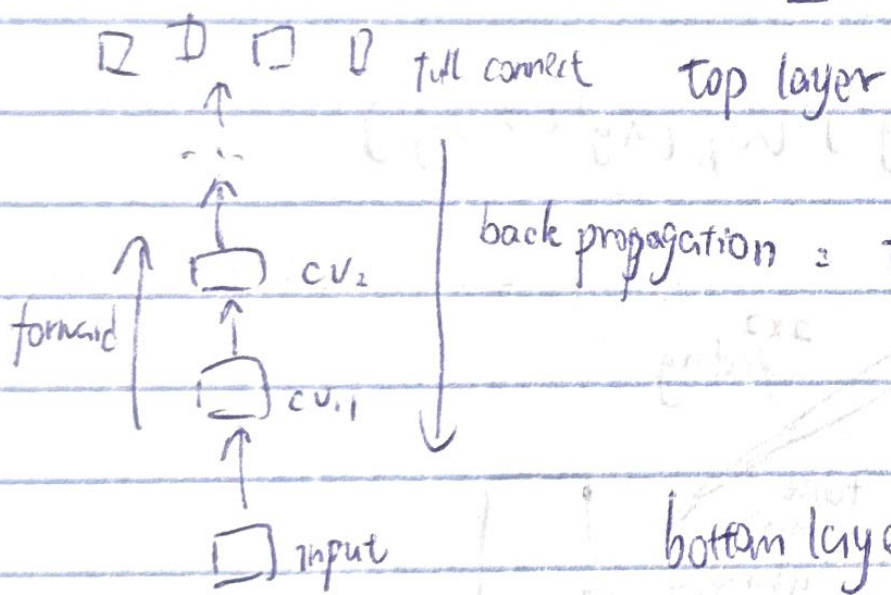 full connect top layer
back propagation :
cv₂
forward
cv.1
input bottom laye